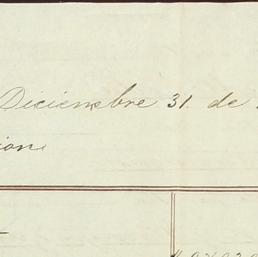 Diciembre 31 de
ion